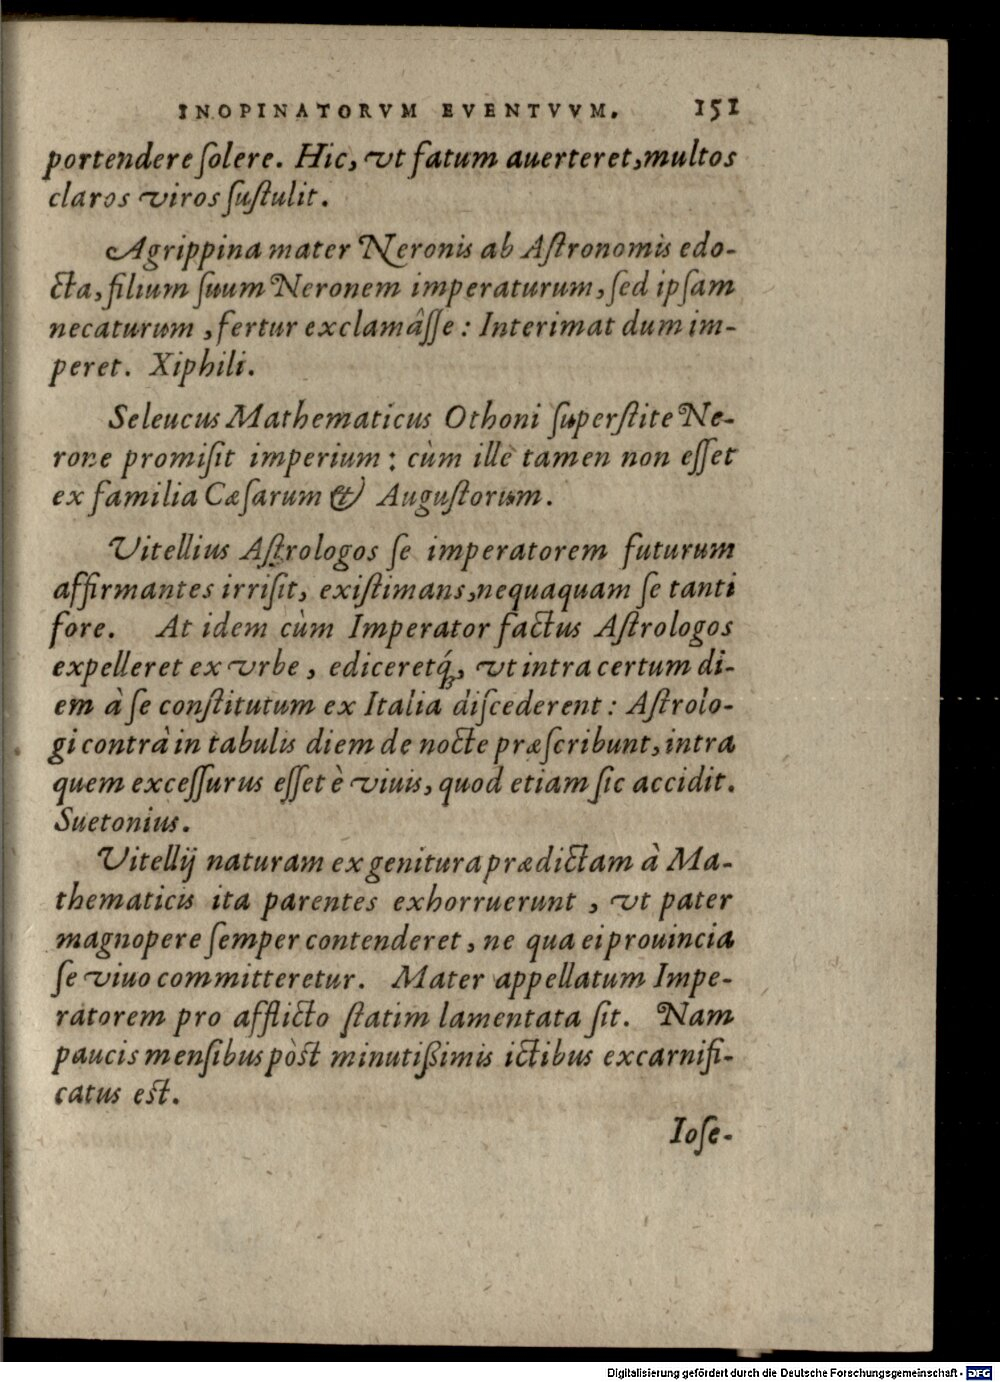 INOPINATORVM EVENTVVM. 151
portendere ſolere. Hic, vt fatum auerteret, multos
claros viros ſuſtulit.
Agrippina mater Neronis ab Aſtronomis edo-
cta, filium ſuum Neronem imperaturum, ſed ipſam
necaturum, fertur exclamâſſe: Interimat dum im-
peret. Xiphili.
Seleucus Mathematicus Othoni ſuperſtite Ne-
rone promiſit imperium: cùm ille tamen non eſſet
ex familia Cæſarum & Auguſtorum.
Vitellius Aſtrologos ſe imperatorem futurum
affirmantes irriſit, exiſtimans, nequaquam ſe tanti
fore. At idem cùm Imperator factus Aſtrologos
expelleret ex vrbe, ediceretq́;, vt intra certum di-
em à ſe conſtitutum ex Italia diſcederent: Aſtrolo-
gi contrà in tabulis diem de nocte præſcribunt, intra
quem exceſſurus eſſet è viuis, quod etiam ſic accidit.
Suetonius.
Vitellij naturam ex genitura prædictam à Ma-
thematicis ita parentes exhorruerunt, vt pater
magnopere ſemper contenderet, ne qua ei prouincia
ſe viuo committeretur. Mater appellatum Impe-
ratorem pro afflicto ſtatim lamentata ſit. Nam
paucis menſibus pòst minutißimis ictibus excarnifi-
catus est.
Ioſe-
Digitalisierung gefördert durch die Deutsche Forschungsgemeinschaft - DFG